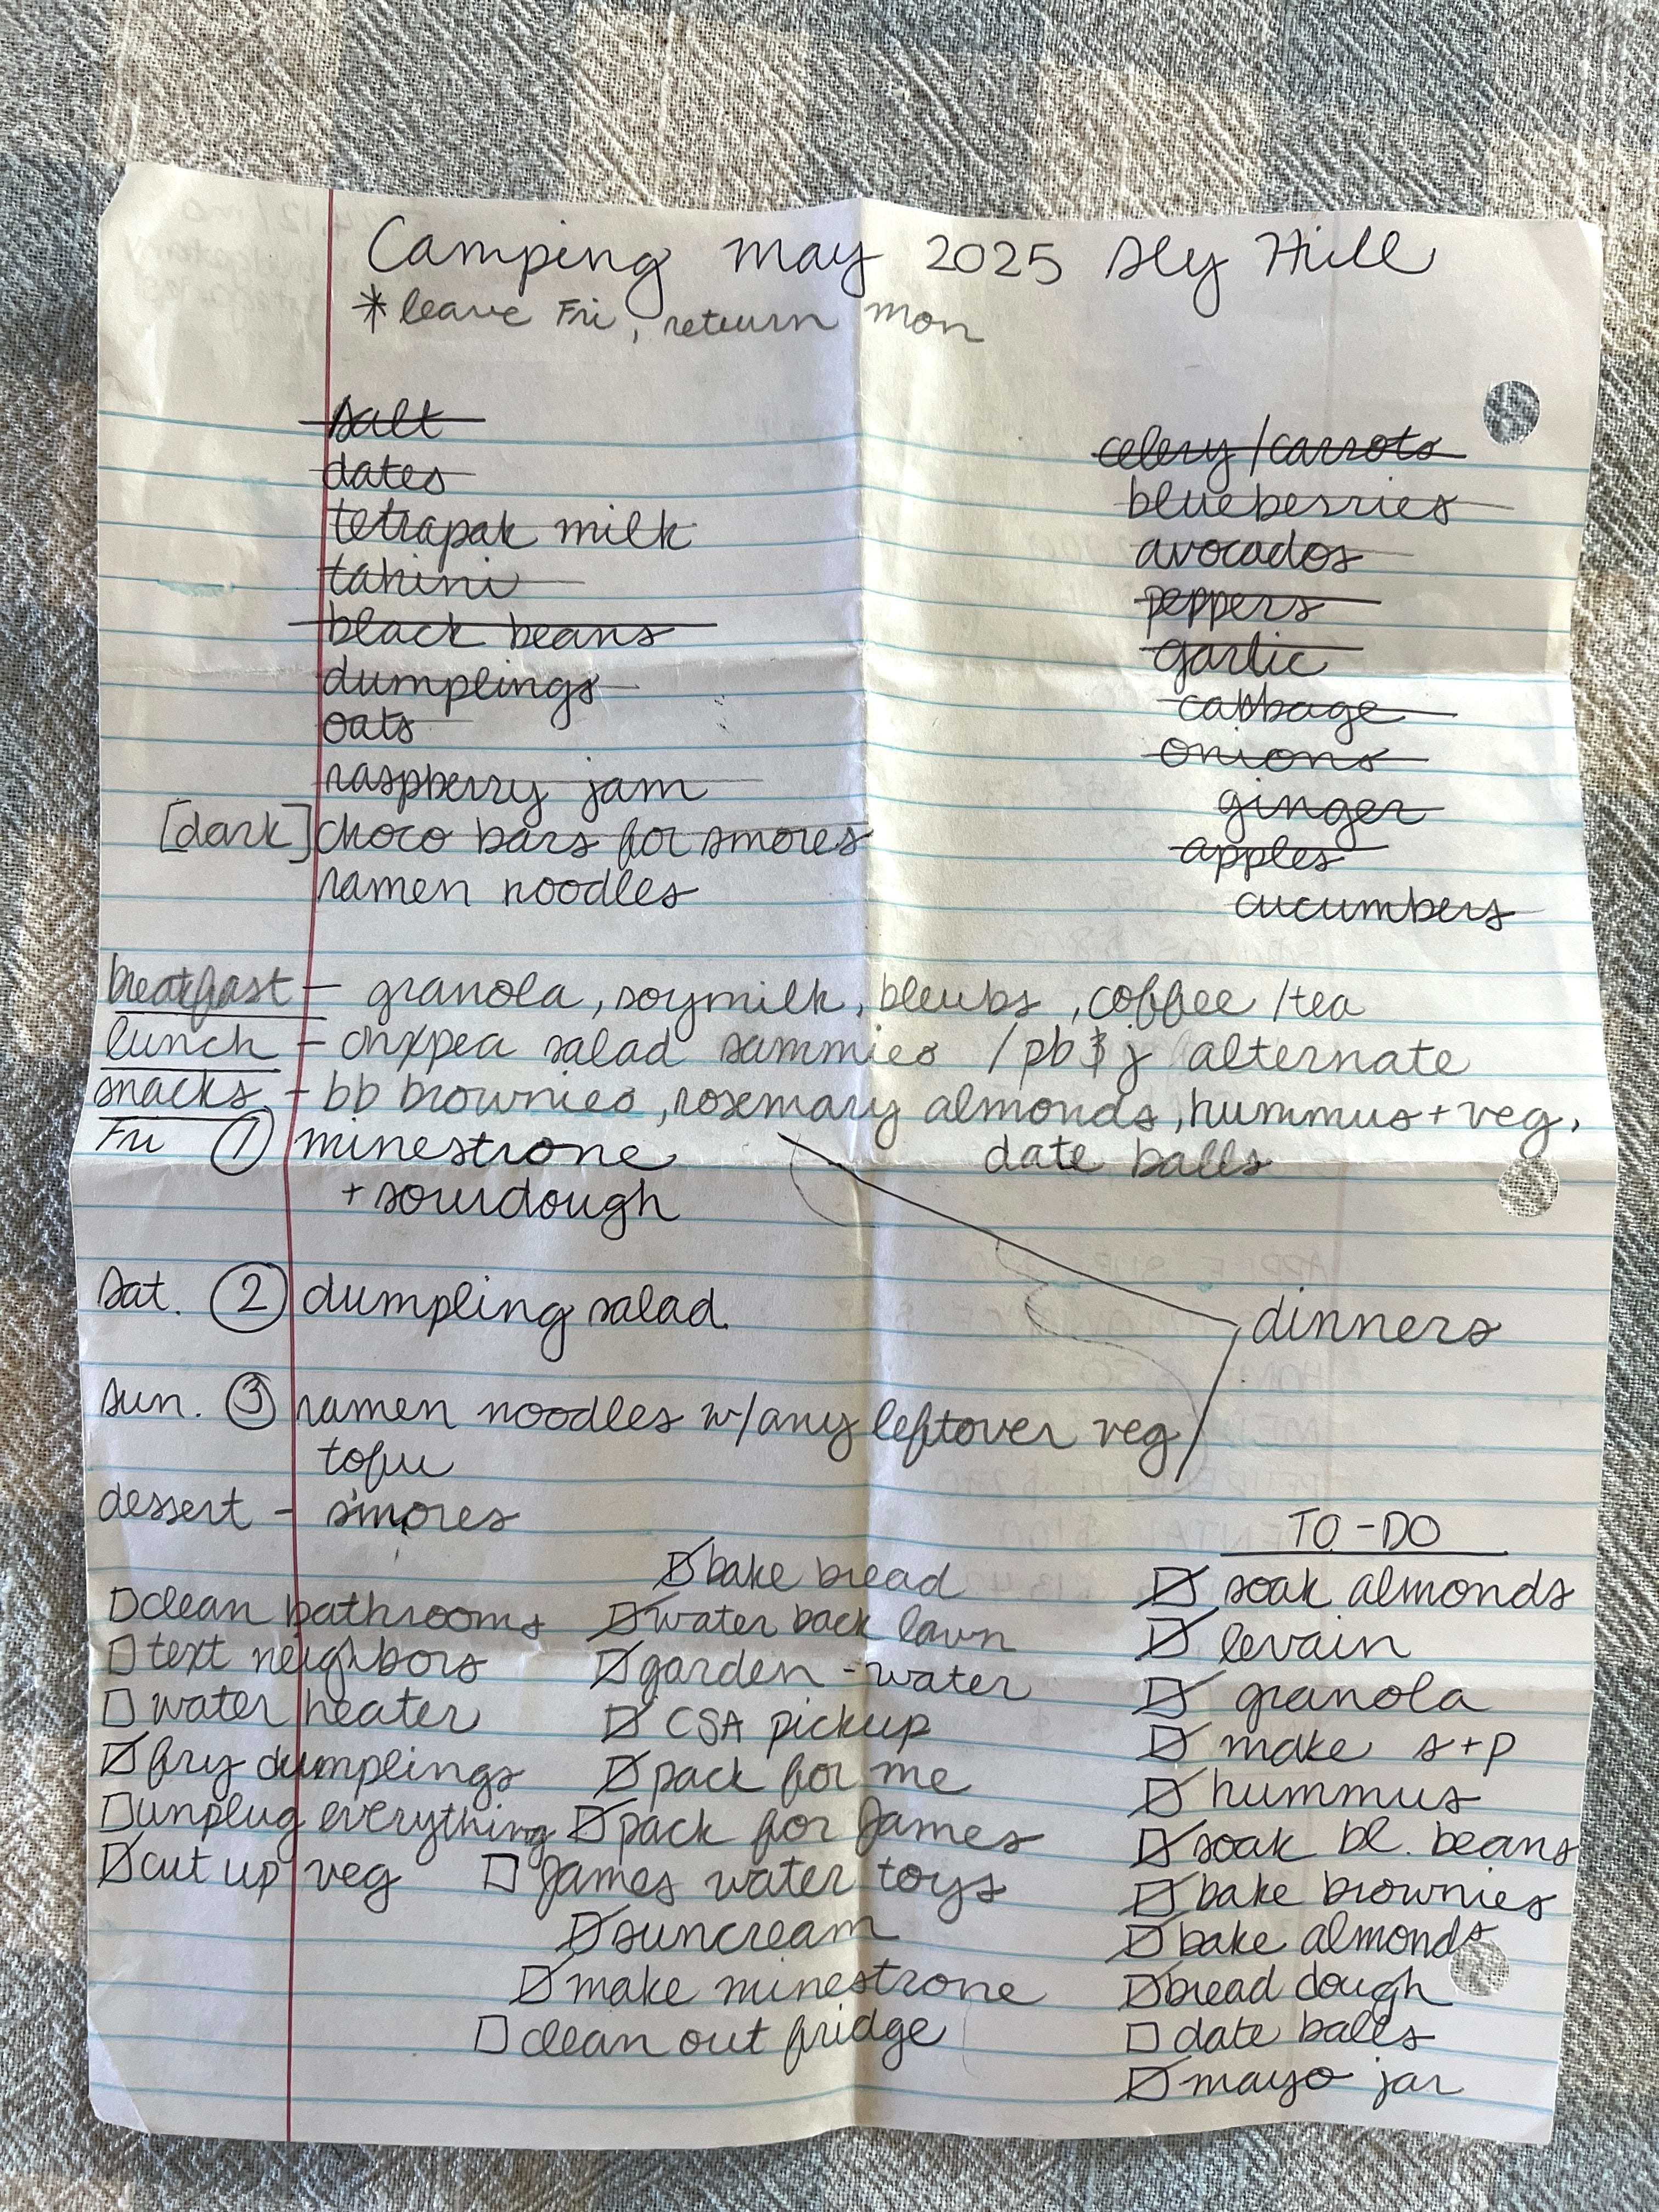 Camping May 2025 Sly Hill
*leave Fri, return Mon
salt
dates
tetrapak milk
tahini
black beans
dumplings
oats
raspberry jam
[dark] choco bars for smores
ramen noodles
celery/carrots
blueberries
avocados
peppers
garlic
cabbage
onions
ginger
apples
cucumbers
breakfast - granola, soymilk, bleubs, coffee/tea
lunch - chxpea salad sammies / pb$j alternate
snacks - bb brownies, rosemary almonds, hummus + veg,
date balls
Fri ① minestrone
+ sourdough
sat. ② dumpling salad
sun. ③ ramen noodles w/any leftover veg
tofu
dinners
dessert - s'mores
☐ clean bathrooms
☐ text neighbors
☐ water heater
☑ fry dumplings
☐ unplug everything
☑ cut up veg
☑ bake bread
☑ water back lawn
☑ garden - water
☑ CSA pickup
☑ pack for me
☑ pack for James
☐ James water toys
☑ suncream
☑ make minestrone
☐ clean out fridge
TO-DO
☑ soak almonds
☑ levain
☑ granola
☑ make s+p
☑ hummus
☑ soak bl. beans
☑ bake brownies
☑ bake almonds
☑ bread dough
☐ date balls
☑ mayo jar